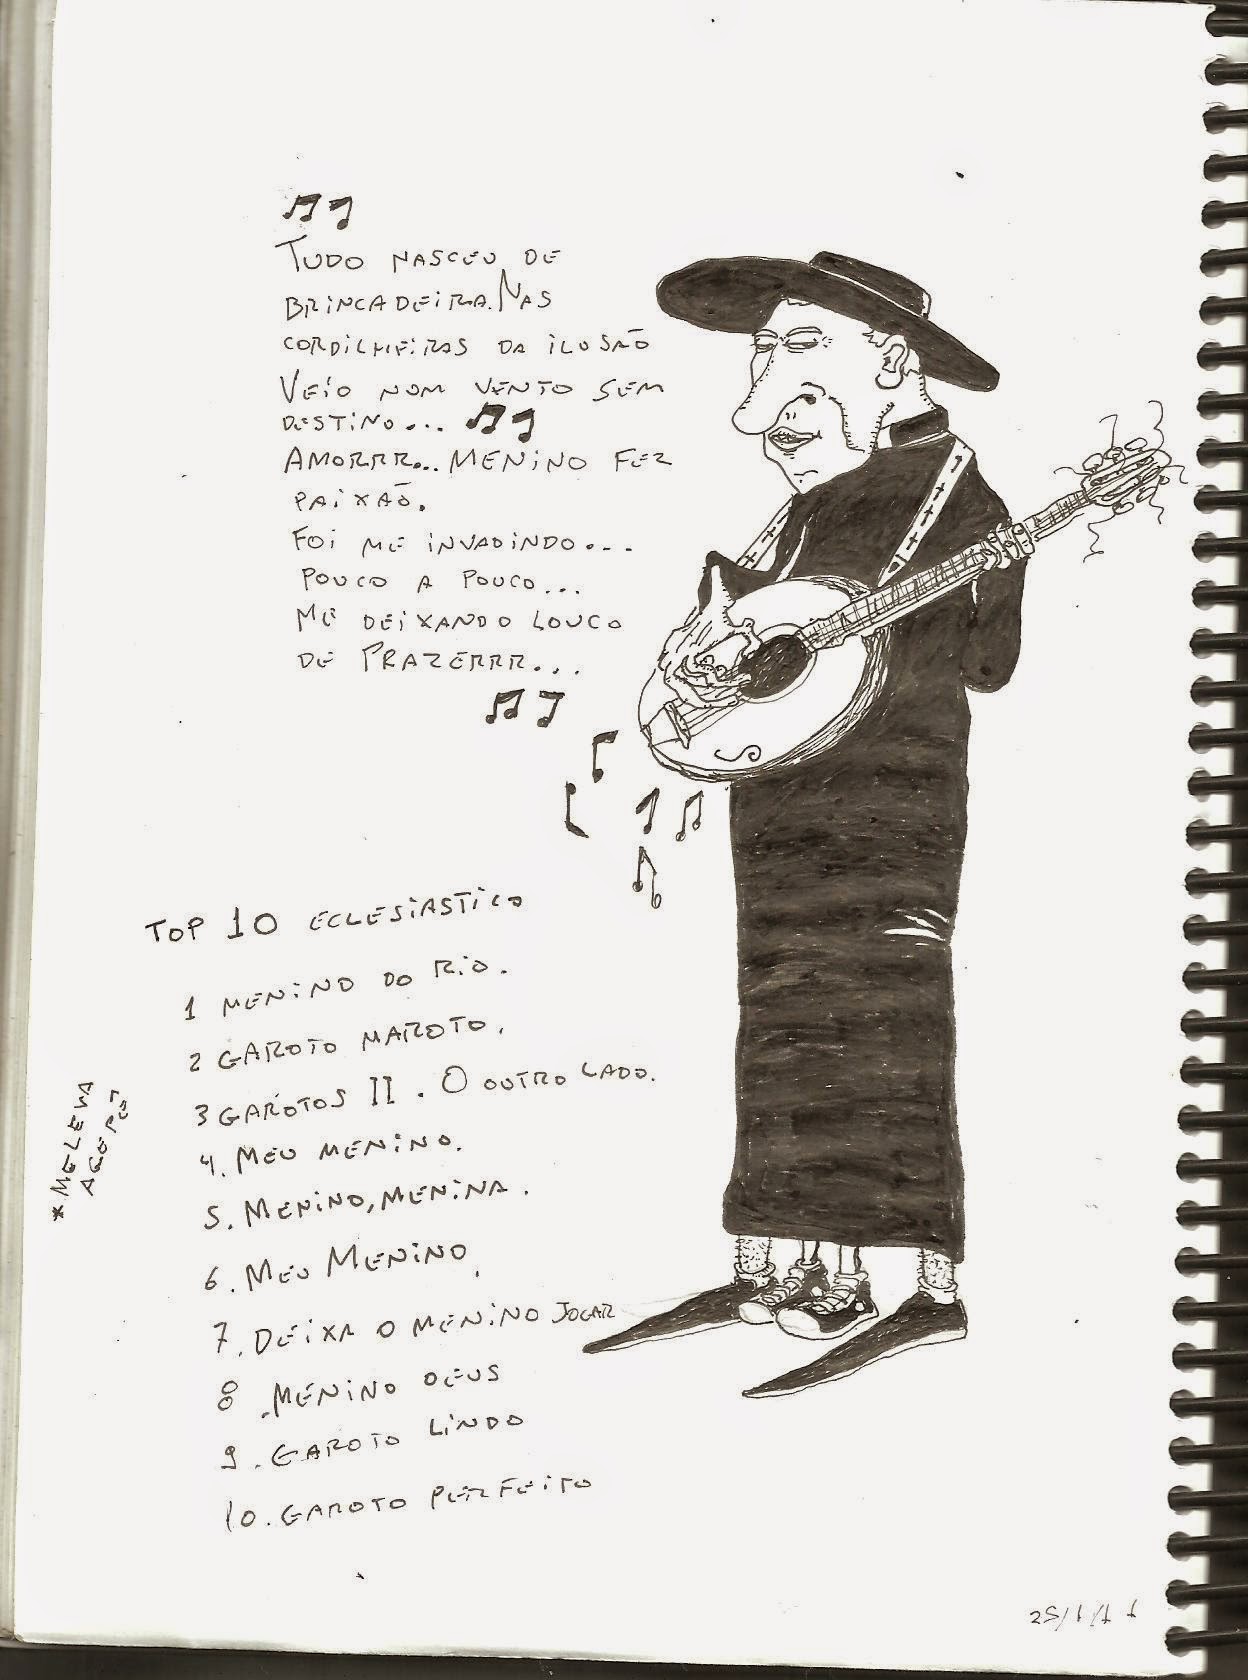 TUDO NASCEU DE
BRINCADEIRA. NAS
CORDILHEIRAS DA ILUSÃO
VEIO NUM VENTO SEM
DESTINO...
AMORRR... MENINO FEZ
PAIXÃO.
FOI ME INVADINDO...
POUCO A POUCO...
ME DEIXANDO LOUCO
DE PRAZERRR...
TOP 10 ECLESIASTICO
1 MENINO DO RIO.
2 GAROTO MAROTO.
3 GAROTOS II. O OUTRO LADO.
4. MEU MENINO.
5. MENINO, MENINA.
6. MEU MENINO.
7. DEIXA O MENINO JOGAR
8. MENINO DEUS
9. GAROTO LINDO
10. GAROTO PERFEITO
* ME LEVA
25/1/11